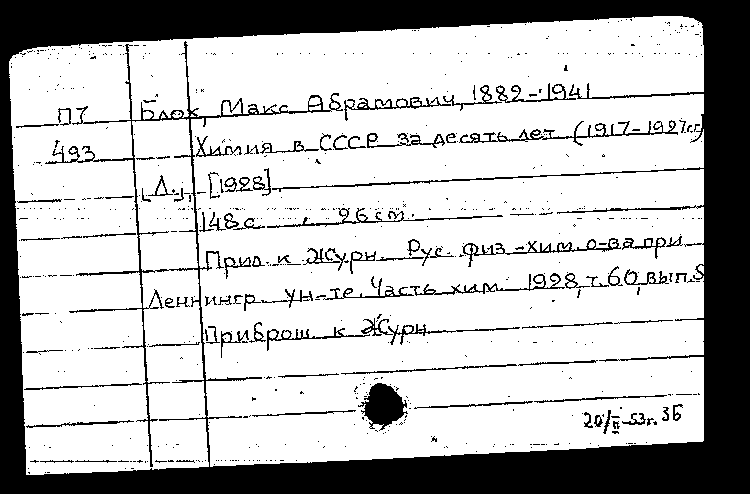 П7 Блох, Макс Абрамович, 1882-1941
493 Химия в СССР за десять лет (1917-1927гг)
[Л.], [1928].
148 с. 26 см.
Прил. к Журн. Рус. физ.-хим. о-ва при
Ленингр. ун-те. Часть хим. 1928, т. 60, вып.
Приброш. к Журн.
20/II-53г.